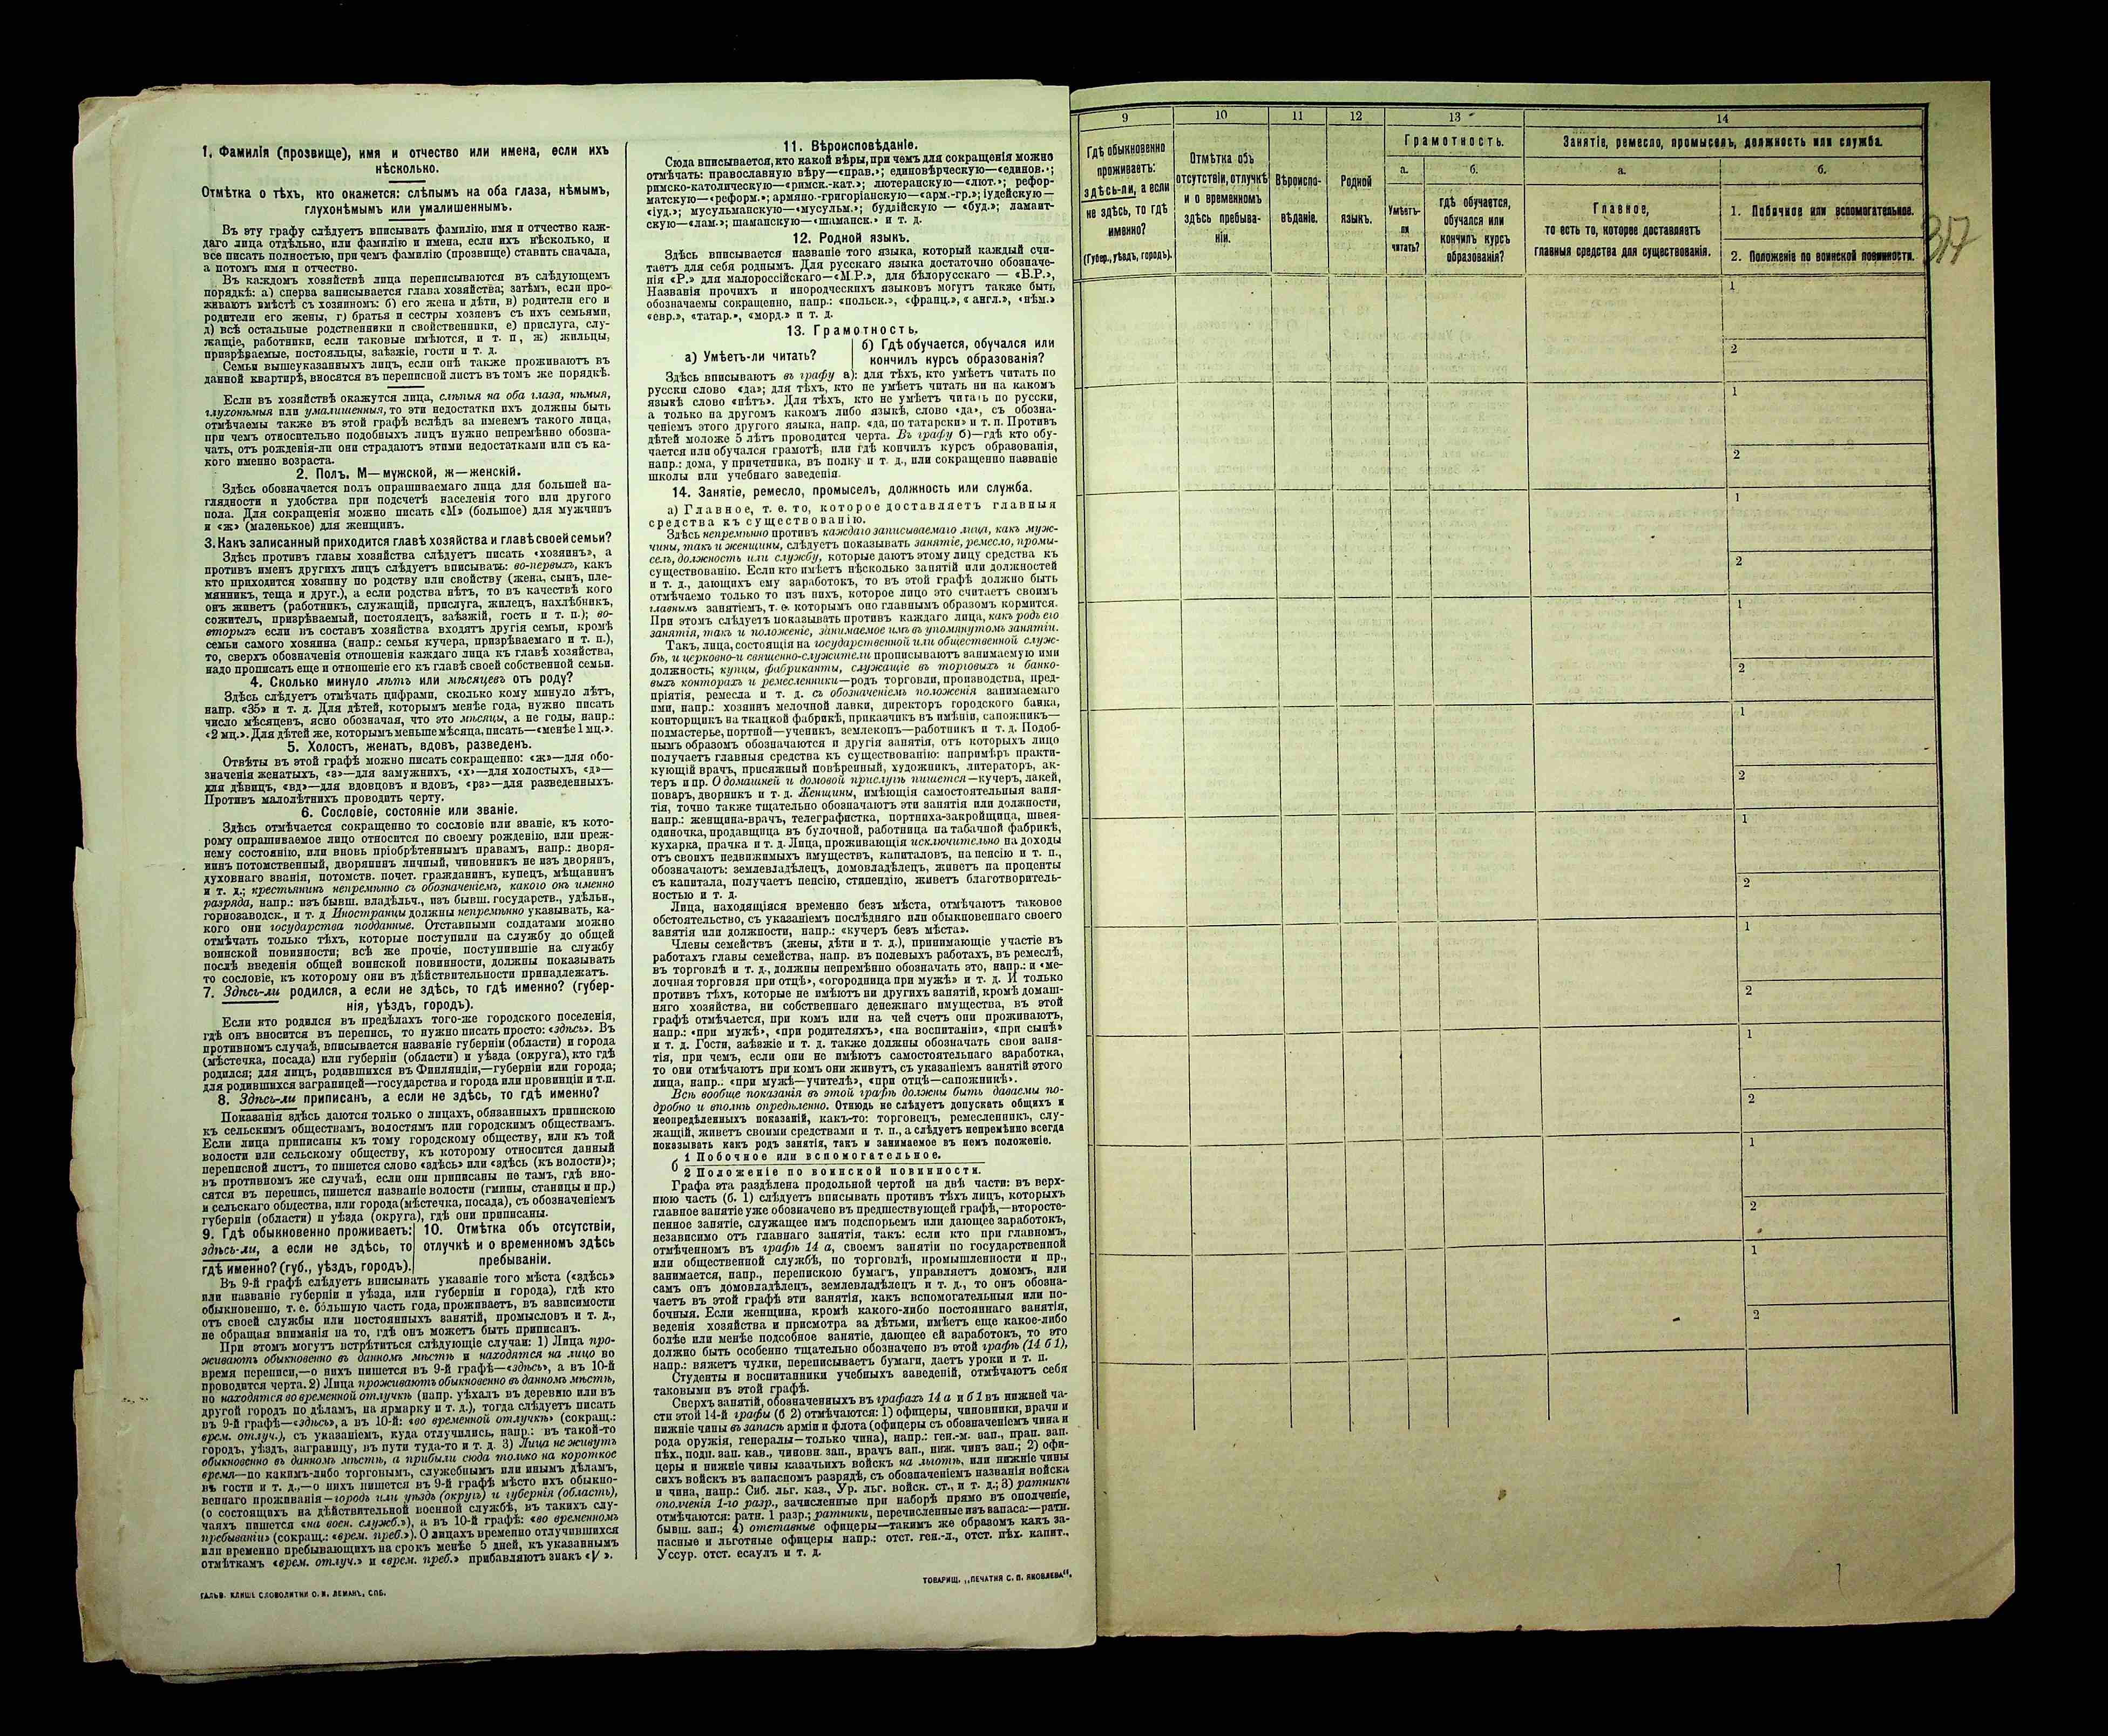 1. Фамилія (прозвище), имя и отчество или имена, если ихъ
нѣсколько.
Отмѣтка о тѣхъ, кто окажется: слѣпымъ на оба глаза, нѣмымъ,
глухонѣмымъ или умалишеннымъ.
Въ эту графу слѣдуетъ вписывать фамилію, имя и отчество каж-
даго лица отдѣльно, или фамилію и имена, если ихъ нѣсколько, и
все писать полностью, при чемъ фамилію (прозвище) ставить сначала,
а потомъ имя и отчество.
Въ каждомъ хозяйствѣ лица переписываются въ слѣдующемъ
порядкѣ: а) сперва записывается глава хозяйства; затѣмъ, если про-
живаютъ вмѣстѣ съ хозяиномъ: б) его жена и дѣти, в) родители его и
родители его жены, г) братья и сестры хозяевъ съ ихъ семьями,
д) всѣ остальные родственники и свойственники, е) прислуга, слу-
жащіе, работники, если таковые имѣются, и т. п, ж) жильцы,
призрѣваемые, постояльцы, заѣзжіе, гости и т. д.
Семьи вышеуказанныхъ лицъ, если онѣ также проживаютъ въ
данной квартирѣ, вносятся въ переписной листъ въ томъ же порядкѣ.
Если въ хозяйствѣ окажутся лица, слѣпыя на оба глаза, нѣмыя,
глухонѣмыя или умалишенныя, то эти недостатки ихъ должны быть
отмѣчаемы также въ этой графѣ вслѣдъ за именемъ такого лица,
при чемъ относительно подобныхъ лицъ нужно непремѣнно обозна-
чать, отъ рожденія-ли они страдаютъ этими недостатками или съ ка-
кого именно возраста.
2. Полъ. М—мужской, ж—женскій.
Здѣсь обозначается полъ опрашиваемаго лица для большей на-
глядности и удобства при подсчетѣ населенія того или другого
пола. Для сокращенія можно писать «М» (большое) для мужчинъ
и «ж» (маленькое) для женщинъ.
3. Какъ записанный приходится главѣ хозяйства и главѣ своей семьи?
Здѣсь противъ главы хозяйства слѣдуетъ писать «хозяинъ», а
противъ именъ другихъ лицъ слѣдуетъ вписывать: во-первыхъ, какъ
кто приходится хозяину по родству или свойству (жена, сынъ, пле-
мянникъ, теща и друг.), а если родства нѣтъ, то въ качествѣ кого
онъ живетъ (работникъ, служащій, прислуга, жилецъ, нахлѣбникъ,
сожитель, призрѣваемый, постоялецъ, заѣзжій, гость и т. п.); во-
вторыхъ если въ составъ хозяйства входятъ другія семьи, кромѣ
семьи самого хозяина (напр.: семья кучера, призрѣваемаго и т. п.),
то, сверхъ обозначенія отношенія каждаго лица къ главѣ хозяйства,
надо прописать еще и отношеніе его къ главѣ своей собственной семьи.
4. Сколько минуло лѣтъ или мѣсяцевъ отъ роду?
Здѣсь слѣдуетъ отмѣчать цифрами, сколько кому минуло лѣтъ,
напр. «35» и т. д. Для дѣтей, которымъ менѣе года, нужно писать
число мѣсяцевъ, ясно обозначая, что это мѣсяцы, а не годы, напр.:
«2 мц.». Для дѣтей же, которымъ меньше мѣсяца, писать—«менѣе 1 мц.».
5. Холостъ, женатъ, вдовъ, разведенъ.
Отвѣты въ этой графѣ можно писать сокращенно: «ж»—для обо-
значенія женатыхъ, «з»—для замужнихъ, «х»—для холостыхъ, «д»—
для дѣвицъ, «вд»—для вдовцовъ и вдовъ, «рз»—для разведенныхъ.
Противъ малолѣтнихъ проводить черту.
6. Сословіе, состояніе или званіе.
Здѣсь отмѣчается сокращенно то сословіе или званіе, къ кото-
рому опрашиваемое лицо относится по своему рожденію, или преж-
нему состоянію, или вновь пріобрѣтеннымъ правамъ, напр.: дворя-
нинъ потомственный, дворянинъ личный, чиновникъ не изъ дворянъ,
духовнаго званія, потомств. почет. гражданинъ, купецъ, мѣщанинъ
и т. д.; крестьянинъ непремѣнно съ обозначеніемъ, какого онъ именно
разряда, напр.: изъ бывш. владѣльч., изъ бывш. государств., удѣльн.,
горнозаводск., и т. д Иностранцы должны непремѣнно указывать, ка-
кого они государства подданные. Отставными солдатами можно
отмѣчать только тѣхъ, которые поступили на службу до общей
воинской повинности; всѣ же прочіе, поступившіе на службу
послѣ введенія общей воинской повинности, должны показывать
то сословіе, къ которому они въ дѣйствительности принадлежатъ.
7. Здѣсь-ли родился, а если не здѣсь, то гдѣ именно? (губер-
нія, уѣздъ, городъ).
Если кто родился въ предѣлахъ того-же городского поселенія,
гдѣ онъ вносится въ перепись, то нужно писать просто: «здѣсь». Въ
противномъ случаѣ, вписывается названіе губерніи (области) и города
(мѣстечка, посада) или губерніи (области) и уѣзда (округа), кто гдѣ
родился; для лицъ, родившихся въ Финляндіи,—губерніи или города;
для родившихся заграницей—государства и города или провинціи и т.п.
8. Здѣсь-ли приписанъ, а если не здѣсь, то гдѣ именно?
Показанія здѣсь даются только о лицахъ, обязанныхъ припискою
къ сельскимъ обществамъ, волостямъ или городскимъ обществамъ.
Если лица приписаны къ тому городскому обществу, или къ той
волости или сельскому обществу, къ которому относится данный
переписной листъ, то пишется слово «здѣсь» или «здѣсь (къ волости)»;
въ противномъ же случаѣ, если они приписаны не тамъ, гдѣ вно-
сятся въ перепись, пишется названіе волости (гмины, станицы и пр.)
и сельскаго общества, или города (мѣстечка, посада), съ обозначеніемъ
губерніи (области) и уѣзда (округа), гдѣ они приписаны.
9. Гдѣ обыкновенно проживаетъ:
здѣсь-ли, а если не здѣсь, то
гдѣ именно? (губ., уѣздъ, городъ).
10. Отмѣтка объ отсутствіи,
отлучкѣ и о временномъ здѣсь
пребываніи.
Въ 9-й графѣ слѣдуетъ вписывать указаніе того мѣста («здѣсь»
или названіе губерніи и уѣзда, или губерніи и города), гдѣ кто
обыкновенно, т. е. бо́льшую часть года, проживаетъ, въ зависимости
отъ своей службы или постоянныхъ занятій, промысловъ и т. д.,
не обращая вниманія на то, гдѣ онъ можетъ быть приписанъ.
При этомъ могутъ встрѣтиться слѣдующіе случаи: 1) Лица про-
живаютъ обыкновенно въ данномъ мѣстѣ и находятся на лицо во
время переписи,—о нихъ пишется въ 9-й графѣ—«здѣсь», а въ 10-й
проводится черта. 2) Лица проживаютъ обыкновенно въ данномъ мѣстѣ,
но находятся во временной отлучкѣ (напр. уѣхалъ въ деревню или въ
другой городъ по дѣламъ, на ярмарку и т. д.), тогда слѣдуетъ писать
въ 9-й графѣ—«здѣсь», а въ 10-й: «во временной отлучкѣ» (сокращ.:
врем. отлуч.), съ указаніемъ, куда отлучились, напр.: въ такой-то
городъ, уѣздъ, заграницу, въ пути туда-то и т. д. 3) Лица не живутъ
обыкновенно въ данномъ мѣстѣ, а прибыли сюда только на короткое
время—по какимъ-либо торговымъ, служебнымъ или инымъ дѣламъ,
въ гости и т. д.,—о нихъ пишется въ 9-й графѣ мѣсто ихъ обыкно-
веннаго проживанія—городъ или уѣздъ (округъ) и губернія (область),
(о состоящихъ на дѣйствительной военной службѣ, въ такихъ слу-
чаяхъ пишется «на воен. служб.»), а въ 10-й графѣ: «во временномъ
пребываніи» (сокращ.: «врем. преб.»). О лицахъ временно отлучившихся
или временно пребывающихъ на срокъ менѣе 5 дней, къ указаннымъ
отмѣткамъ «врем. отлуч.» и «врем. преб.» прибавляютъ знакъ «V».
ГАЛЬВ. КЛИШЕ СЛОВОЛИТНИ О. И. ЛЕМАНЪ, СПБ.
11. Вѣроисповѣданіе.
Сюда вписывается, кто какой вѣры, при чемъ для сокращенія можно
отмѣчать: православную вѣру—«прав.»; единовѣрческую—«единов.»;
римско-католическую—«римск.-кат.»; лютеранскую—«лют.»; рефор-
матскую—«реформ.»; армяно.-григоріанскую—«арм.-гр.»; іудейскую—
«іуд.»; мусульманскую—«мусульм.»; буддійскую — «буд.»; ламаит-
скую—«лам.»; шаманскую—«шаманск.» и т. д.
12. Родной языкъ.
Здѣсь вписывается названіе того языка, который каждый счи-
таетъ для себя роднымъ. Для русскаго языка достаточно обозначе-
нія «Р.» для малороссійскаго—«М.Р.», для бѣлорусскаго — «Б.Р.»,
Названія прочихъ и инородческихъ языковъ могутъ также быть
обозначаемы сокращенно, напр.: «польск.», «франц.», «англ.», «нѣм.»
«евр.», «татар.», «морд.» и т. д.
13. Грамотность.
а) Умѣетъ-ли читать?
б) Гдѣ обучается, обучался или
кончилъ курсъ образованія?
Здѣсь вписываютъ въ графу а): для тѣхъ, кто умѣетъ читать по
русски слово «да»; для тѣхъ, кто не умѣетъ читать ни на какомъ
языкѣ слово «нѣтъ». Для тѣхъ, кто не умѣетъ читать по русски,
а только на другомъ какомъ либо языкѣ, слово «да», съ обозна-
ченіемъ этого другого языка, напр. «да, по татарски» и т. п. Противъ
дѣтей моложе 5 лѣтъ проводится черта. Въ графу б)—гдѣ кто обу-
чается или обучался грамотѣ, или гдѣ кончилъ курсъ образованія,
напр.: дома, у причетника, въ полку и т. д., или сокращенно названіе
школы или учебнаго заведенія.
14. Занятіе, ремесло, промыселъ, должность или служба.
а) Главное, т. е. то, которое доставляетъ главныя
средства къ существованію.
Здѣсь непремѣнно противъ каждаго записываемаго лица, какъ муж-
чины, такъ и женщины, слѣдуетъ показывать занятіе, ремесло, промы-
селъ, должность или службу, которые даютъ этому лицу средства къ
существованію. Если кто имѣетъ нѣсколько занятій или должностей
и т. д., дающихъ ему заработокъ, то въ этой графѣ должно быть
отмѣчаемо только то изъ нихъ, которое лицо это считаетъ своимъ
главнымъ занятіемъ, т. е. которымъ оно главнымъ образомъ кормится.
При этомъ слѣдуетъ показывать противъ каждаго лица, какъ родъ его
занятія, такъ и положеніе, занимаемое имъ въ упомянутомъ занятіи.
Такъ, лица, состоящія на государственной или общественной служ-
бѣ, и церковно-и священно-служители прописываютъ занимаемую ими
должность; купцы, фабриканты, служащіе въ торговыхъ и банко-
выхъ конторахъ и ремесленники—родъ торговли, производства, пред-
пріятія, ремесла и т. д. съ обозначеніемъ положенія занимаемаго
ими, напр.: хозяинъ мелочной лавки, директоръ городского банка,
конторщикъ на ткацкой фабрикѣ, приказчикъ въ имѣніи, сапожникъ—
подмастерье, портной—ученикъ, землекопъ—работникъ и т. д. Подоб-
нымъ образомъ обозначаются и другія занятія, отъ которыхъ лицо
получаетъ главныя средства къ существованію: напримѣръ практи-
кующій врачъ, присяжный повѣренный, художникъ, литераторъ, ак-
теръ и пр. О домашней и домовой прислугѣ пишется—кучеръ, лакей,
поваръ, дворникъ и т. д. Женщины, имѣющія самостоятельныя заня-
тія, точно также тщательно обозначаютъ эти занятія или должности,
напр.: женщина-врачъ, телеграфистка, портниха-закройщица, швея-
одиночка, продавщица въ булочной, работница на табачной фабрикѣ,
кухарка, прачка и т. д. Лица, проживающія исключительно на доходы
отъ своихъ недвижимыхъ имуществъ, капиталовъ, на пенсію и т. п.,
обозначаютъ: землевладѣлецъ, домовладѣлецъ, живетъ на проценты
съ капитала, получаетъ пенсію, стипендію, живетъ благотворитель-
ностью и т. д.
Лица, находящіяся временно безъ мѣста, отмѣчаютъ таковое
обстоятельство, съ указаніемъ послѣдняго или обыкновеннаго своего
занятія или должности, напр.: «кучеръ безъ мѣста».
Члены семействъ (жены, дѣти и т. д.), принимающіе участіе въ
работахъ главы семейства, напр. въ полевыхъ работахъ, въ ремеслѣ,
въ торговлѣ и т. д., должны непремѣнно обозначать это, напр.: и «ме-
лочная торговля при отцѣ», «огородница при мужѣ» и т. д. И только
противъ тѣхъ, которые не имѣютъ ни другихъ занятій, кромѣ домаш-
няго хозяйства, ни собственнаго денежнаго имущества, въ этой
графѣ отмѣчается, при комъ или на чей счетъ они проживаютъ,
напр.: «при мужѣ», «при родителяхъ», «на воспитаніи», «при сынѣ»
и т. д. Гости, заѣзжіе и т. д. также должны обозначать свои заня-
тія, при чемъ, если они не имѣютъ самостоятельнаго заработка,
то они отмѣчаютъ при комъ они живутъ, съ указаніемъ занятій этого
лица, напр.: «при мужѣ—учителѣ», «при отцѣ—сапожникѣ».
Всѣ вообще показанія въ этой графѣ должны быть даваемы по-
дробно и вполнѣ опредѣленно. Отнюдь не слѣдуетъ допускать общихъ и
неопредѣленныхъ показаній, какъ-то: торговецъ, ремесленникъ, слу-
жащій, живетъ своими средствами и т. п., а слѣдуетъ непремѣнно всегда
показывать какъ родъ занятія, такъ и занимаемое въ немъ положеніе.
б 1 Побочное или вспомогательное.
2 Положеніе по воинской повинности.
Графа эта раздѣлена продольной чертой на двѣ части: въ верх-
нюю часть (б. 1) слѣдуетъ вписывать противъ тѣхъ лицъ, которыхъ
главное занятіе уже обозначено въ предшествующей графѣ,—второсте-
пенное занятіе, служащее имъ подспорьемъ или дающее заработокъ,
независимо отъ главнаго занятія, такъ: если кто при главномъ,
отмѣченномъ въ графѣ 14 а, своемъ занятіи по государственной
или общественной службѣ, по торговлѣ, промышленности и пр.,
занимается, напр., перепискою бумагъ, управляетъ домомъ, или
самъ онъ домовладѣлецъ, землевладѣлецъ и т. д., то онъ обозна-
чаетъ въ этой графѣ эти занятія, какъ вспомогательныя или по-
бочныя. Если женщина, кромѣ какого-либо постояннаго занятія,
веденія хозяйства и присмотра за дѣтьми, имѣетъ еще какое-либо
болѣе или менѣе подсобное занятіе, дающее ей заработокъ, то это
должно быть особенно тщательно обозначено въ этой графѣ (14 б 1),
напр.: вяжетъ чулки, переписываетъ бумаги, даетъ уроки и т. п.
Студенты и воспитанники учебныхъ заведеній, отмѣчаютъ себя
таковыми въ этой графѣ.
Сверхъ занятій, обозначенныхъ въ графахъ 14 а и б 1 въ нижней ча-
сти этой 14-й графы (б 2) отмѣчаются: 1) офицеры, чиновники, врачи и
нижніе чины въ запасѣ арміи и флота (офицеры съ обозначеніемъ чина и
рода оружія, генералы—только чина), напр.: ген.-м. зап., прап. зап.
пѣх., подп. зап. кав., чиновн. зап., врачъ зап., ниж. чинъ зап.; 2) офи-
церы и нижніе чины казачьихъ войскъ на льготѣ, или нижніе чины
сихъ войскъ въ запасномъ разрядѣ, съ обозначеніемъ названія войска
и чина, напр.: Сиб. льг. каз., Ур. льг. войск. ст., и т. д.; 3) ратники
ополченія 1-го разр., зачисленные при наборѣ прямо въ ополченіе,
отмѣчаются: ратн. 1 разр.; ратники, перечисленные изъ запаса:—ратн.
бывш. зап.; 4) отставные офицеры—такимъ же образомъ какъ за-
пасные и льготные офицеры напр.: отст. ген.-л., отст. пѣх. капит.,
Уссур. отст. есаулъ и т. д.
ТОВАРИЩ. „ПЕЧАТНЯ С. П. ЯКОВЛЕВА“.
9
10
11
12
13
14
Гдѣ обыкновенно
проживаетъ:
здѣсь-ли, а если
не здѣсь, то гдѣ
именно?
(Губер., уѣздъ, городъ).
Отмѣтка объ
отсутствіи, отлучкѣ
и о временномъ
здѣсь пребыва-
ніи.
Вѣроиспо-
вѣданіе.
Родной
языкъ.
Грамотность.
а.
Умѣетъ-
ли
читать?
б.
гдѣ обучается,
обучался или
кончилъ курсъ
образованія?
Занятіе, ремесло, промыселъ, должность или служба.
а.
Главное,
то есть то, которое доставляетъ
главныя средства для существованія.
б.
1. Побочное или вспомогательное.
2. Положеніе по воинской повинности.
317
1
2
1
2
1
2
1
2
1
2
1
2
1
2
1
2
1
2
1
2